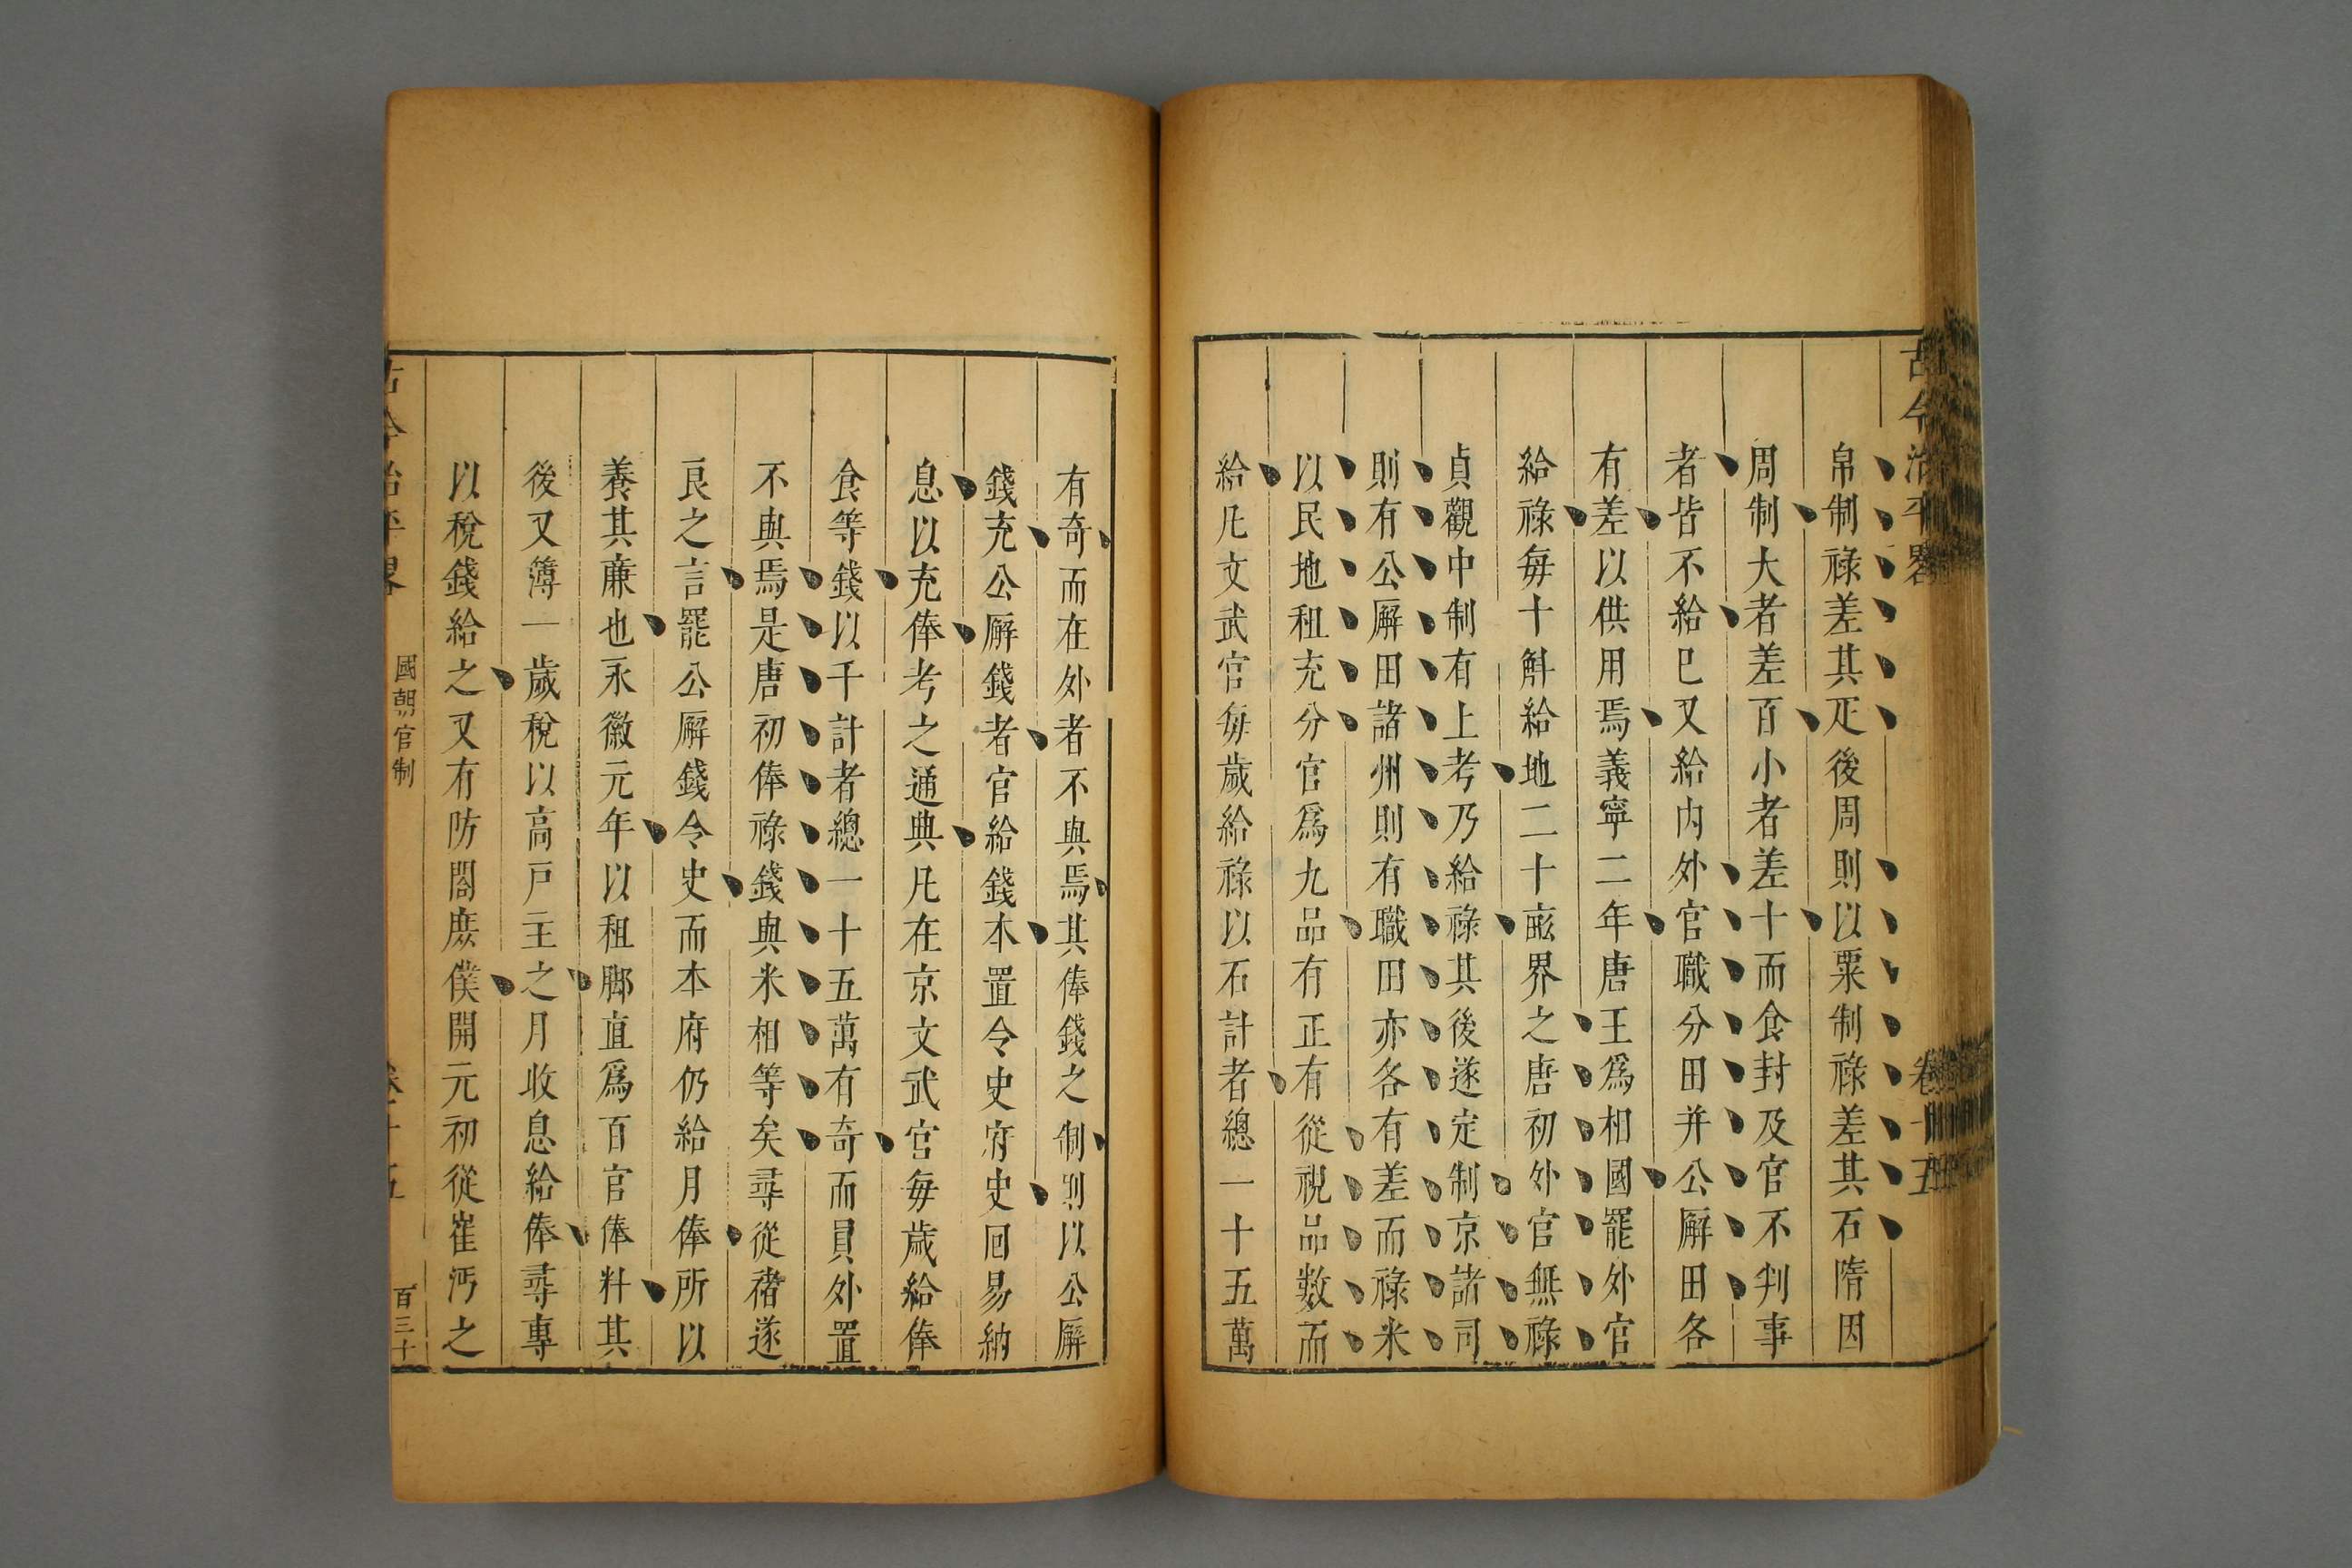 古今治平畧 卷十五
帛制祿差其疋後周則以粟制祿差其石隋因
周制大者差百小者差十而食封及官不判事
者皆不給巳又給内外官職分田并公廨田各
有差以供用焉義寧二年唐王爲相國罷外官
給祿毎十斛給地二十畝界之唐初外官無祿
貞觀中制有上考乃給祿其後遂定制京諸司
則有公廨田諸州則有職田亦各有差而祿米
以民地租充分官爲九品有正有從視品数而
給凡文武官毎歲給祿以石計者總一十五萬
有奇而在外者不與焉其俸錢之制別以公廨
錢充公廨錢者官給錢本置令史府史回易納
息以充俸考之通典凡在京文武官毎歲給俸
食等錢以千計者總一十五萬有奇而員外置
不與焉是唐初俸祿錢與米相等矣尋從禇遂
良之言罷公廨錢令史而本府仍給月俸所以
養其廉也永徽元年以租脚直爲百官俸料其
後又簿一歲稅以高戸主之月收息給俸尋專
以稅錢給之又有防閤庻僕開元初從崔沔之
古今治平畧 國朝官制 卷十五 百三十